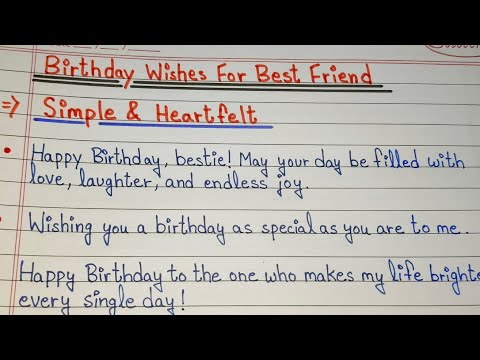 Birthday Wishes For Best Friend
⇒ Simple & Heartfelt
• Happy Birthday, bestie! May your day be filled with
love, laughter, and endless joy.
• Wishing you a birthday as special as you are to me.
Happy Birthday to the one who makes my life brighte
every single day!